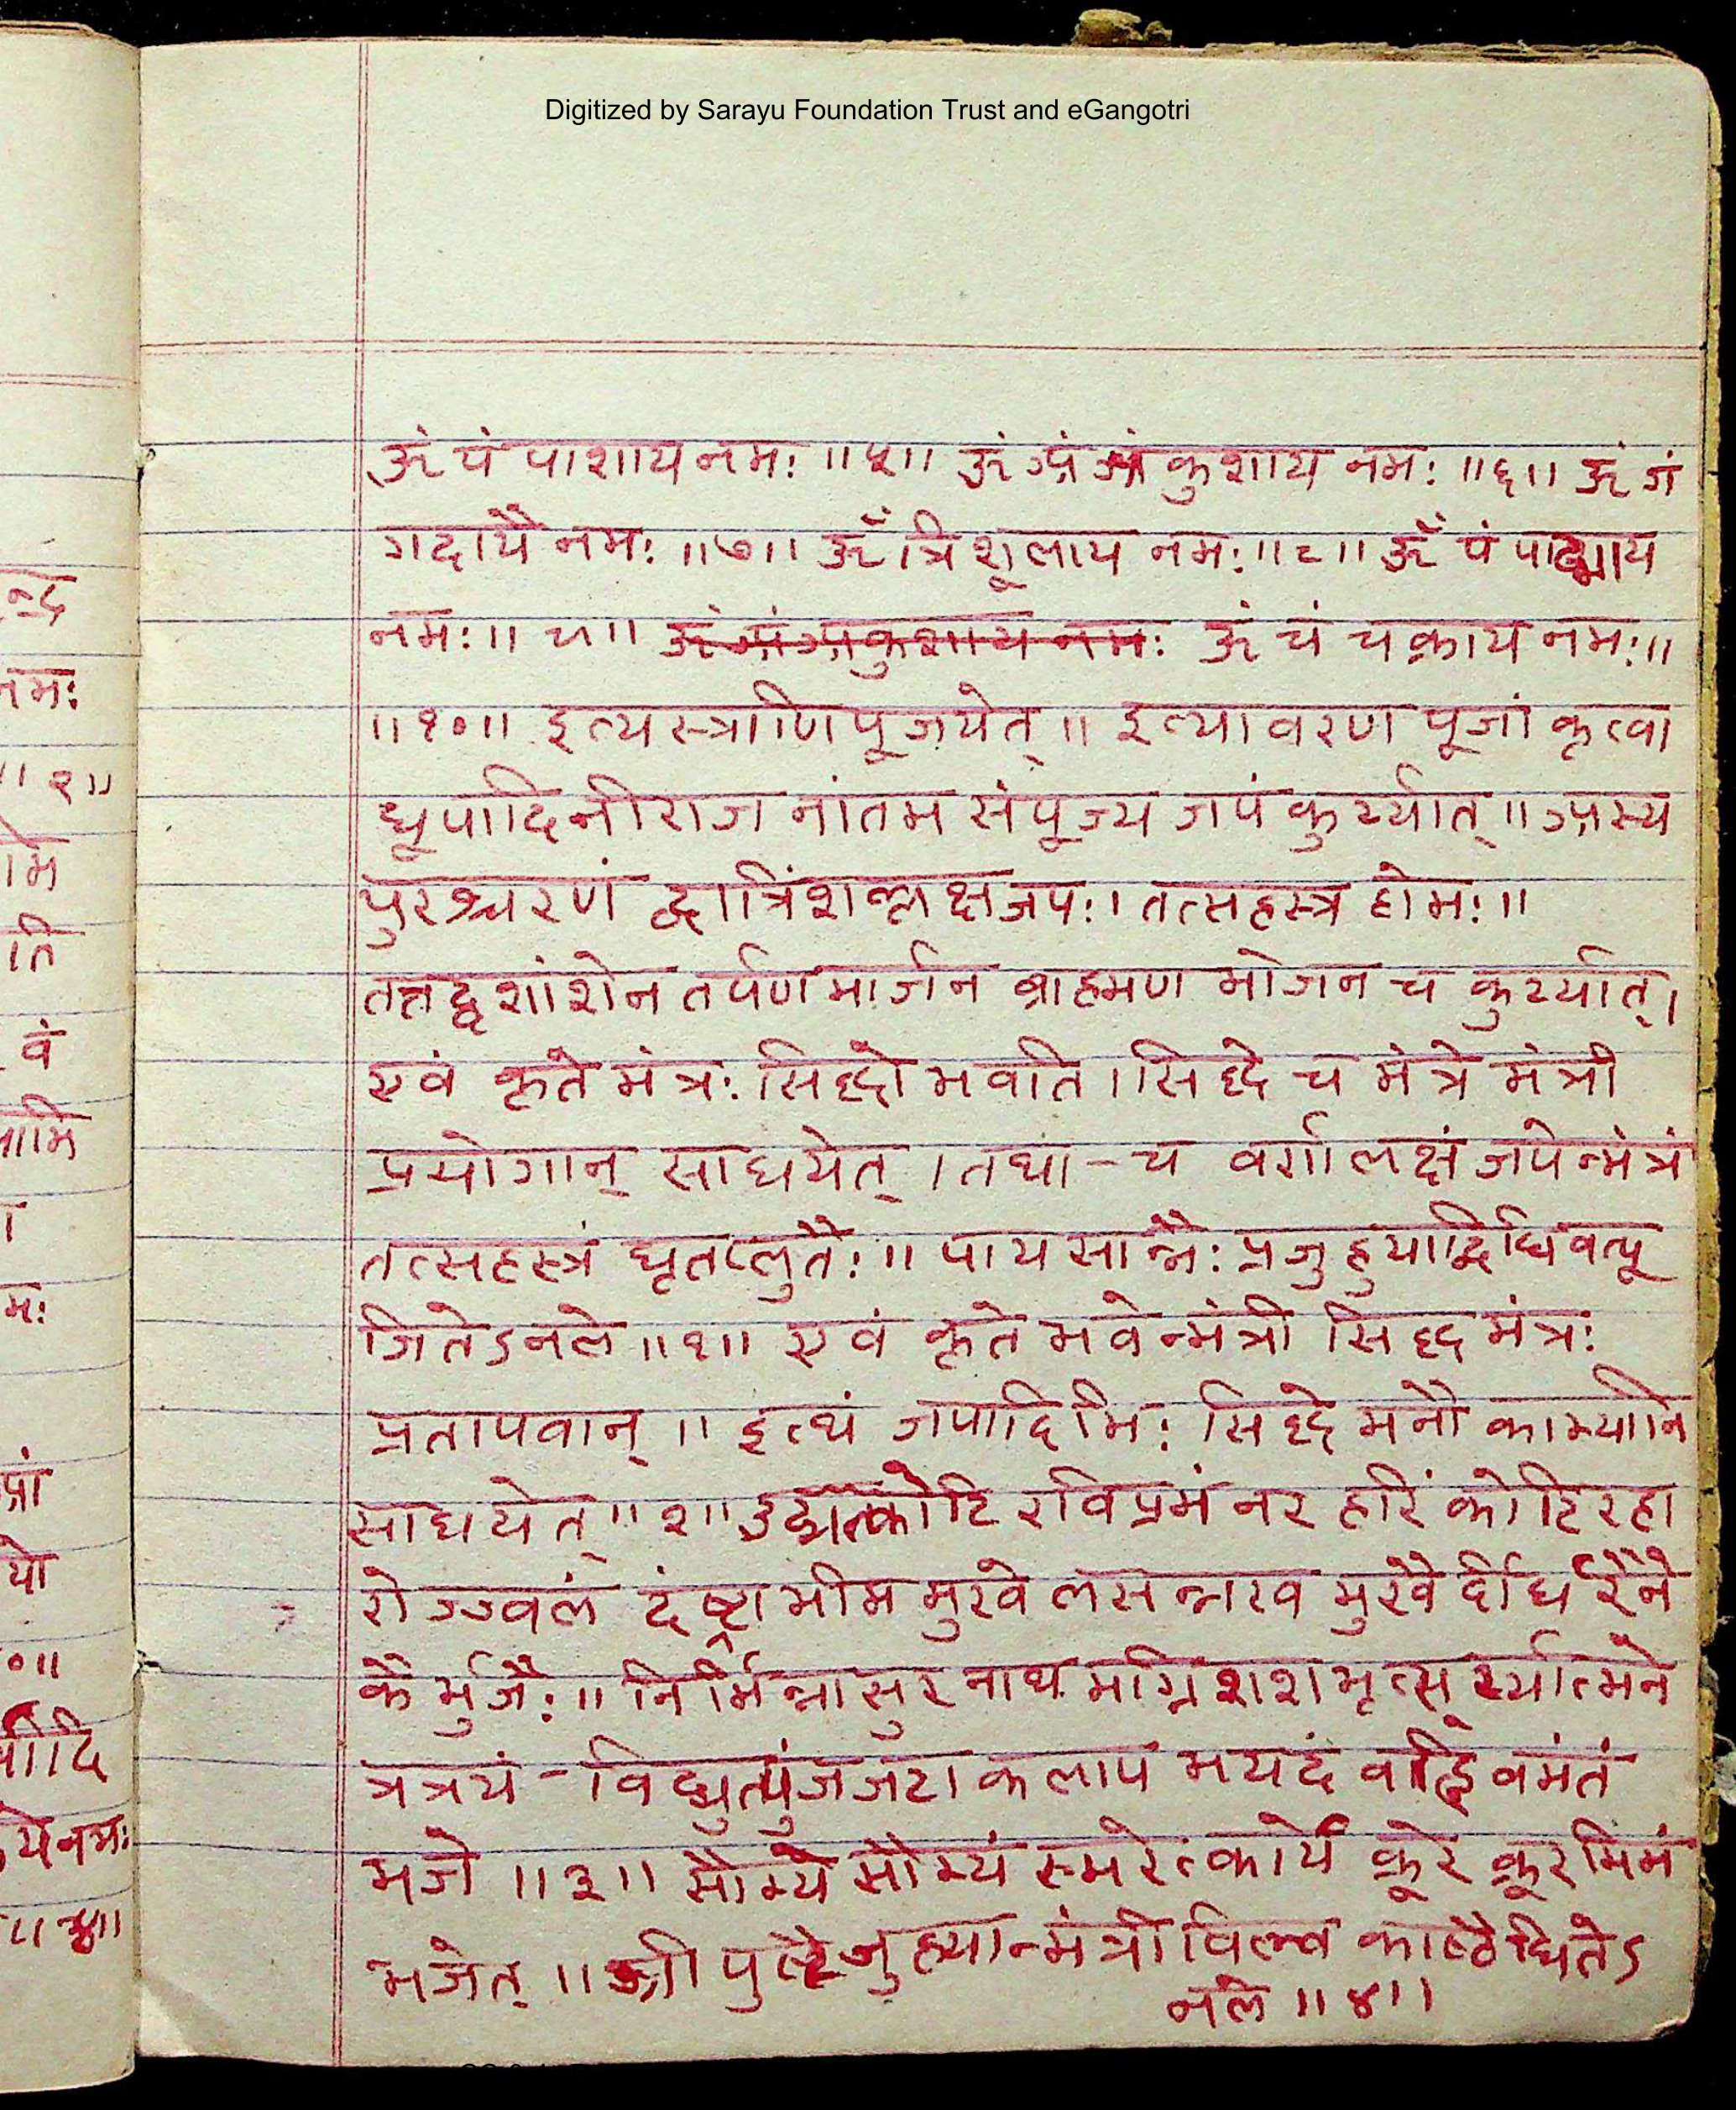 Digitized by Sarayu Foundation Trust and eGangotri
ॐ पं पाशाय नमः ॥५॥ ॐ अं अं कुशाय नमः ॥६॥ ॐ गं
गदायै नमः ॥७॥ ॐ त्रिशूलाय नमः ॥८॥ ॐ पं
नमः ॥९॥ ॐ चं चक्राय नमः ॥
॥१०॥ इत्यस्त्राणि पूजयेत् ॥ इत्यावरण पूजां कृत्वा
धूपादि नीराज नांतम संपूज्य जपं कुर्य्यात् ॥ अस्य
पुरश्चरणं द्वात्रिंशल्लक्षजपः । तत्सहस्त्र होमः ॥
तत्तद्दशांशेन तर्पण मार्जन ब्राह्मण भोजन च कुर्य्यात् ।
एवं कृते मंत्रः सिद्धो भवति । सिद्धे च मंत्रे मंत्री
प्रयोगान् साधयेत् । तथा - च वर्णलक्षं जपेन्मंत्रं
तत्सहस्त्रं घृतप्लुतैः ॥ पायसान्नैः प्रजुहुयाद्विधिवत्पू
जितेऽनले ॥१॥ एवं कृते भवेन्मंत्री सिद्धमंत्रः
प्रतापवान् ॥ इत्थं जपादिभिः सिद्धे मनौ काम्यानि
साधयेत् ॥२॥ उद्यत्कोटि रविप्रभं नर हरिं कोटि रहा
रोज्ज्वलं दंष्ट्रा भीम मुखे लसन्नख मुखैर्दीर्घैरने
कैर्भुजैः ॥ निर्भिन्नासुर नाथ मग्नि शशभृत्सूर्य्यात्मने
त्रत्रयं - विद्युत्पुंजजटा कलाप भयदं वह्निं वमंतं
भजे ॥३॥ सौम्ये सौम्यं स्मरेत्कार्ये क्रूरे क्रूरमिमं
भजेत् ॥ श्री जुहुयान्मंत्री विल्व काष्ठैधितेऽ
नले ॥४॥